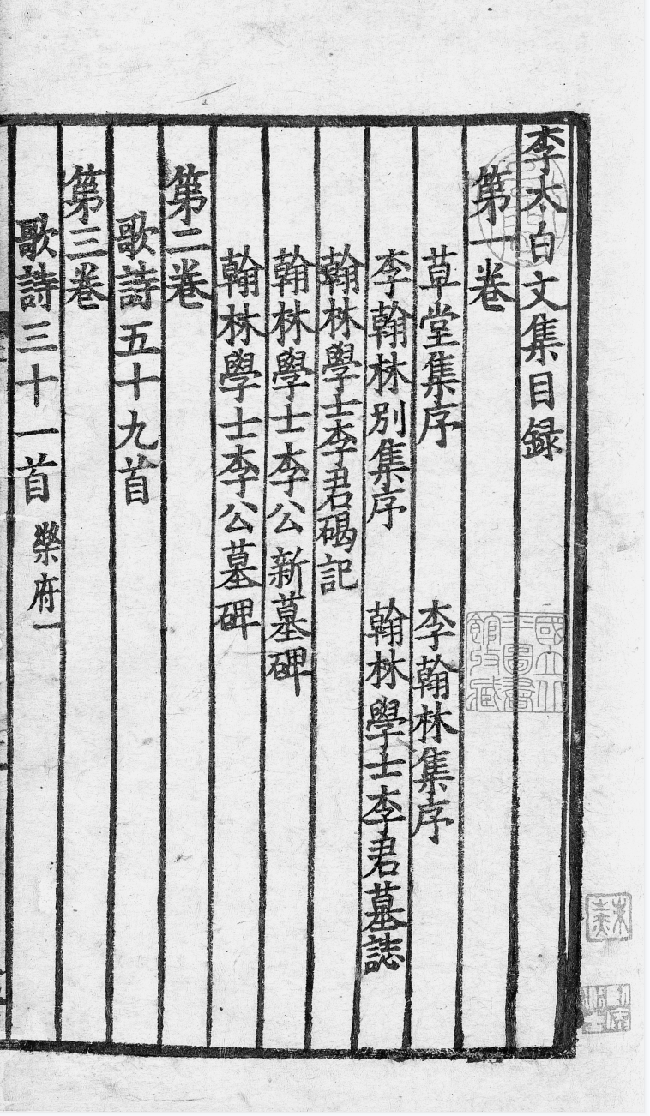 李太白文集目録
第一卷
草堂集序 李翰林集序
李翰林别集序 翰林學士李君墓誌
翰林學士李君碣記
翰林學士李公新墓碑
翰林學士李公墓碑
第二卷
歌詩五十九首
第三卷
歌詩三十一首 樂府一